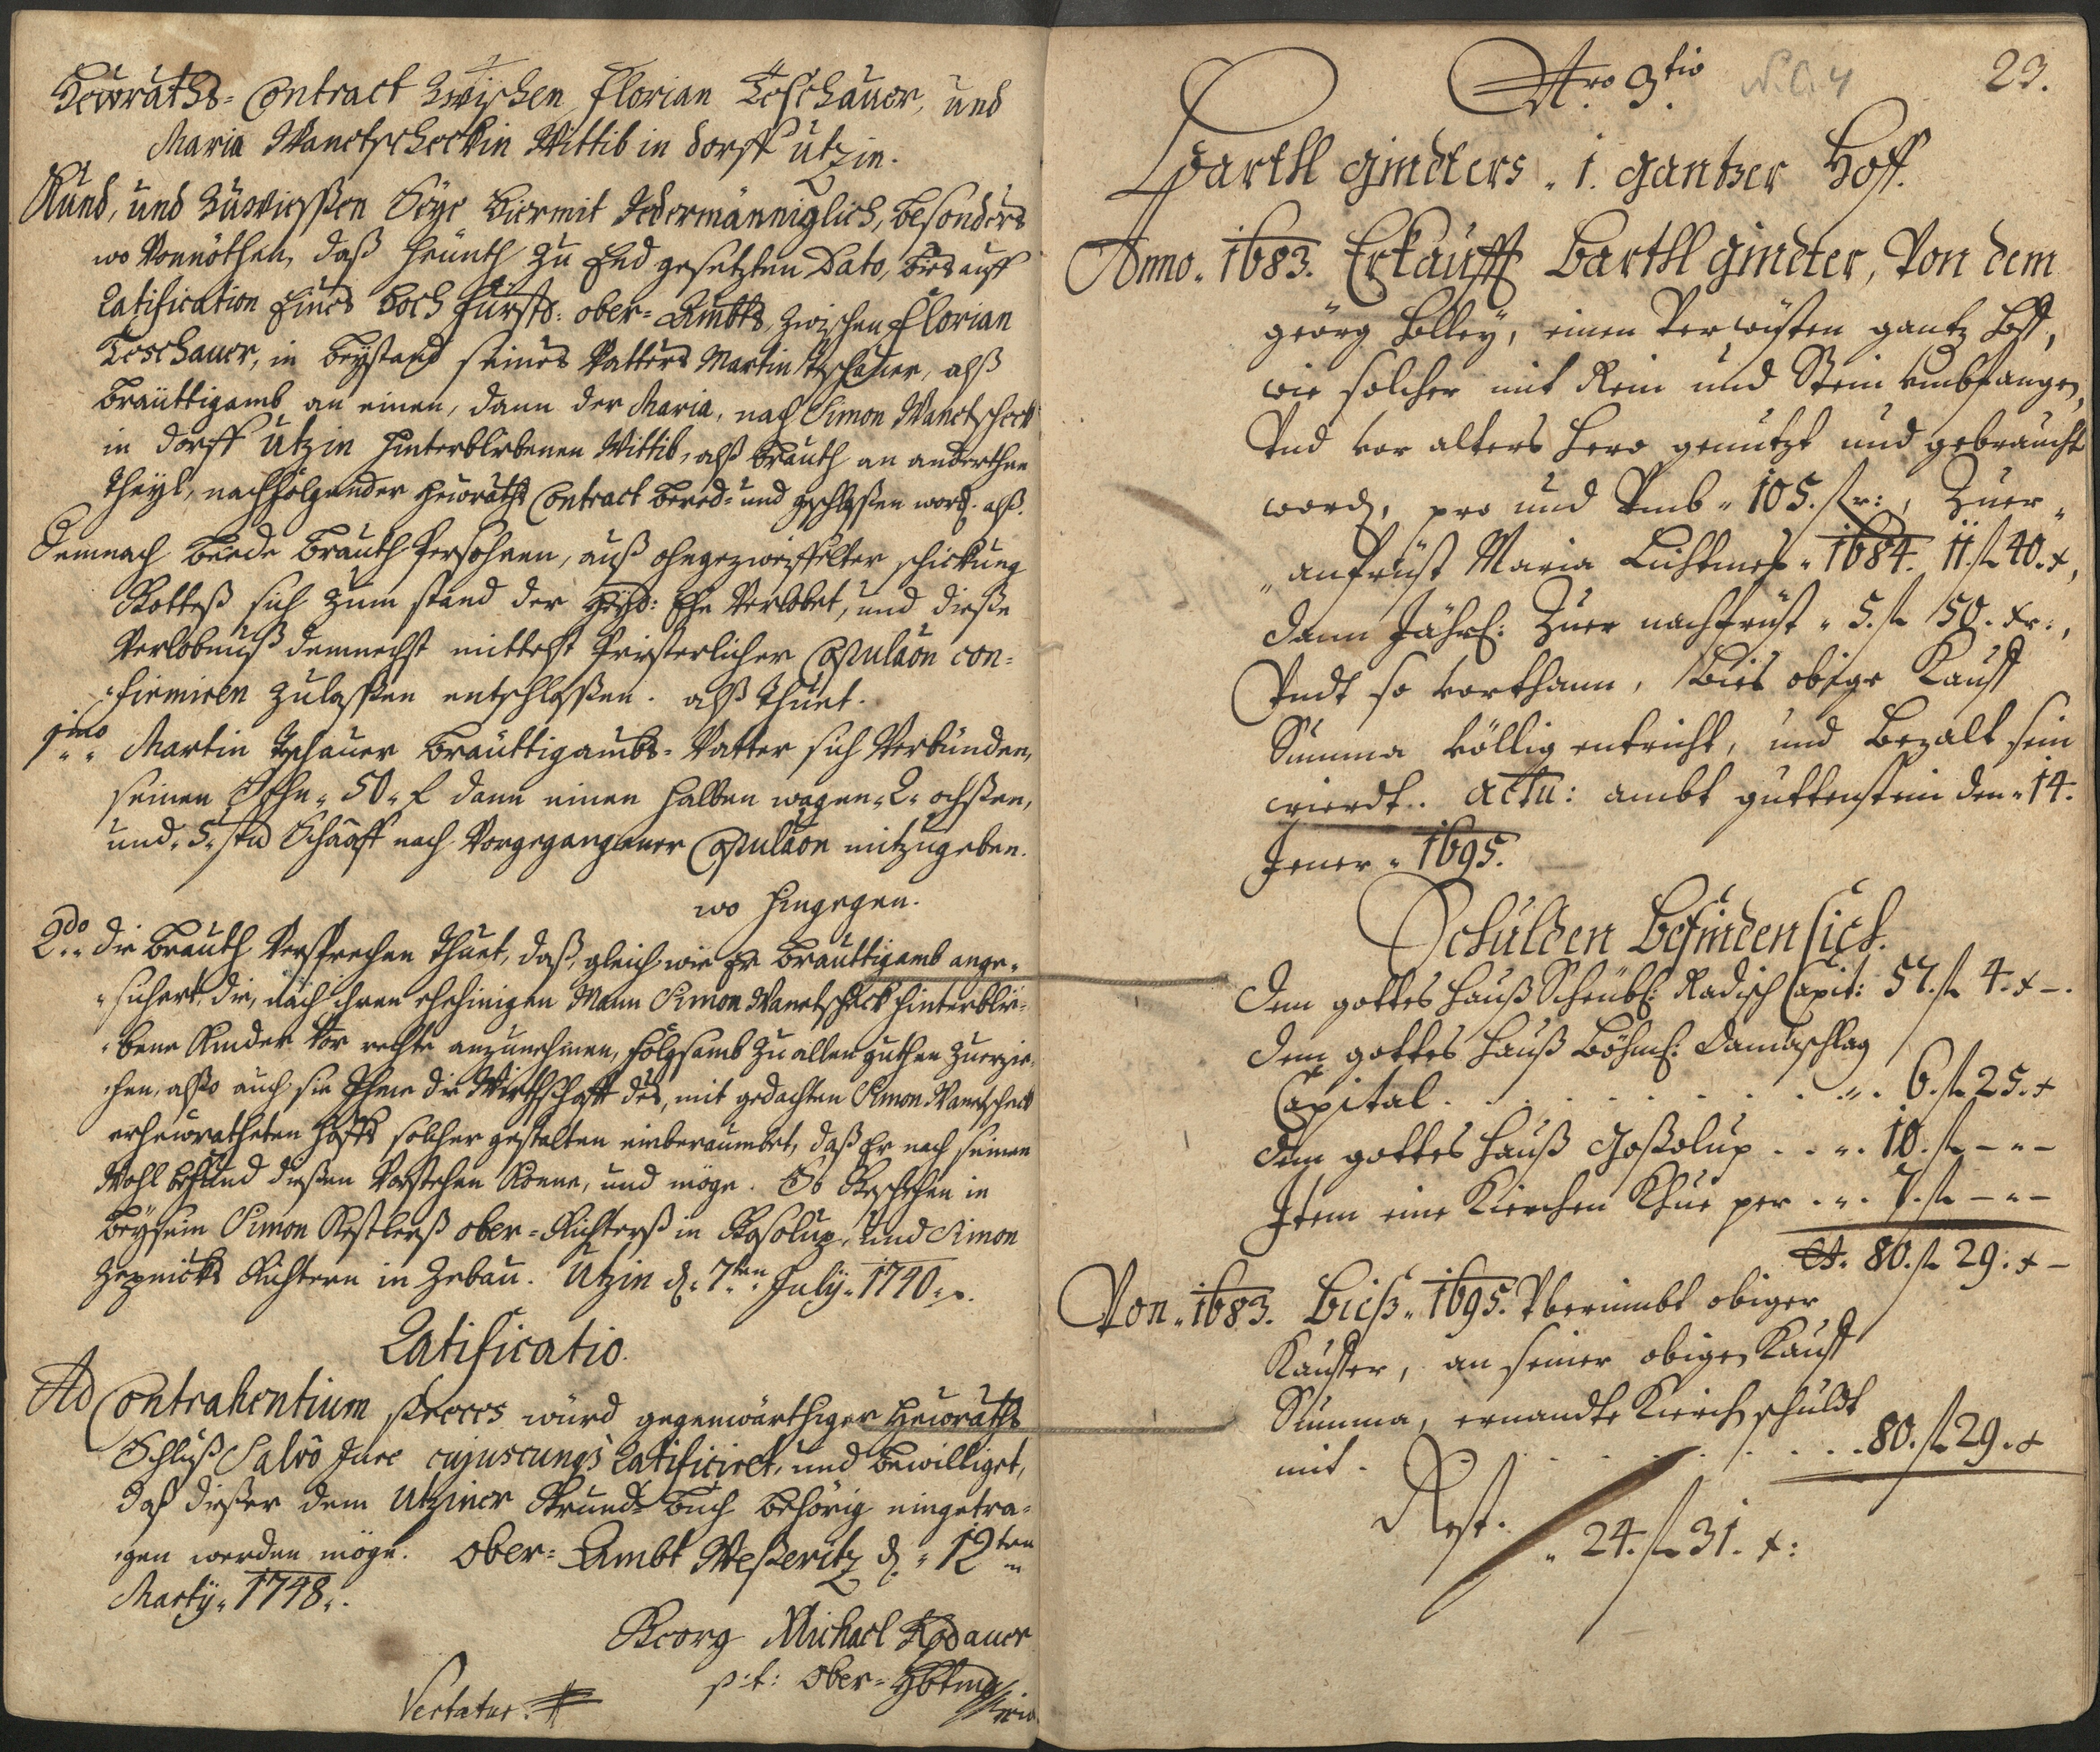 Heuraths- Contract Zwischen Florian Toschauer, und
Maria Wanetscheckin Wittib in dorff Utzin.
Kund, und Zuwiessen Seye hiermit Jedermänniglich, besonders
wo Vonnöthen, daß heunth zu End gesetzten Dato, bies auff
Ratification Eines Hoch Fürstl: ober-Ambts, zwischen Florian
Toschauer, in beystand seines Vatters Martin Toschauer, alß
bräuttigamb an einen, dann der Maria, nach Simon Wanetscheck
in dorff Utzin hinterbliebenen Wittib, alß brauth an anderthen
Theyl, nachfolgender heuraths Contract bered- und geschlossen word. alß.
Demnach beede brauth Persohnen, auß ohngezweiffelter schickung
Gottes sich zum stand der Heyl: Ehe Verlobet, und diese
Verlobnuß demnechst mittelst Priesterlicher Copulaôn con-
firmiren zulassen entschlossen. alß thuet.
1mo Martin Toschauer bräuttigambs-Vatter sich Verbünden,
seinen Sohn 50 f dann einen halben wagen 2 ochsen,
und 5 stu Schaaff nach Vorgegangener Copulaôn mitzugeben.
wo hingegen.
2do die brauth Versprechen thuet, daß, gleich wie Er bräuttigamb ange-
sichert, die, nach ihren ehehinigen Mann Simon Wanetscheck hinterblie-
bene Kinder vor rechte anzunehmen, folgsamb zu allen guthen zuerzie-
hen, also auch sie Ihme die Würthschafft des, mit gedachten Simon Wanetscheck
erheuratheten Hoffs solcher gestalten einberaumbet, daß Er nach seinen
Wohl befund diesen Vorstehen könne, und möge. So Geschehen in
beysein Simon Kestlerß ober-Richterß in Gosolup, und Simon
Richtern in Zebau. Utzin d. 7ten July 1740
Ratificatio.
Ad Contrahentium Preces würd gegenwärthiger Heuraths
Schluß Salvô Jure cujuscunqs Ratificiret, und bewilliget,
daß dieser dem Utziner Grund-Buch behörig eingetra-
gen werden möge. Ober-Ambt Weßeritz d. 12ten
Marty 1748.
Georg Michael
p:t: Ober-Hbtm
Vertatur.
Nro 3tio N.C. 4 23.
Barthl Gindters 1. gantzer Hoff.
Anno 1683. Erkaufft Barthl Gindter, Von dem
georg Holleÿ, einen Verwüsten gantz Hoff,
wie solcher mit Rein und Stein umbfangen,
Vnd vor alters hero genutzt und gebraucht
word, pro und Vmb 105. fl:, Zuer
anfrüst Maria Lichtmeß 1684. 11. fl 40. x,
dann Jährl: Zuer nachfrüst 5. fl 50. xr:,
Vndt so vorthann, bies obige Kauff
Summa völlig entricht, und bezalt sein
wierdt. actu: ambt guttenstein den 14.
Jener 1695.
Schulden befinden sich.
dem gottes hauß Scheubl: Radisch Capit: 57. fl 4. x –.
dem gottes hauß Böhml: Damaschlag
Capital . . . . . . 6. fl 25. x
dem gottes hauß Goßolup . . . 10. fl – – –
Item eine Kirchen Khue per . . 7. fl – – –
St. 80. fl 29. x –
Von 1683. bieß 1695. Vbernimbt obiger
Kauffer, an seiner obigen Kauff
Summa, ernandte Kirch schuldt
mit . . . . . . 80. fl 29. x
Rest. 24. fl 31. x: